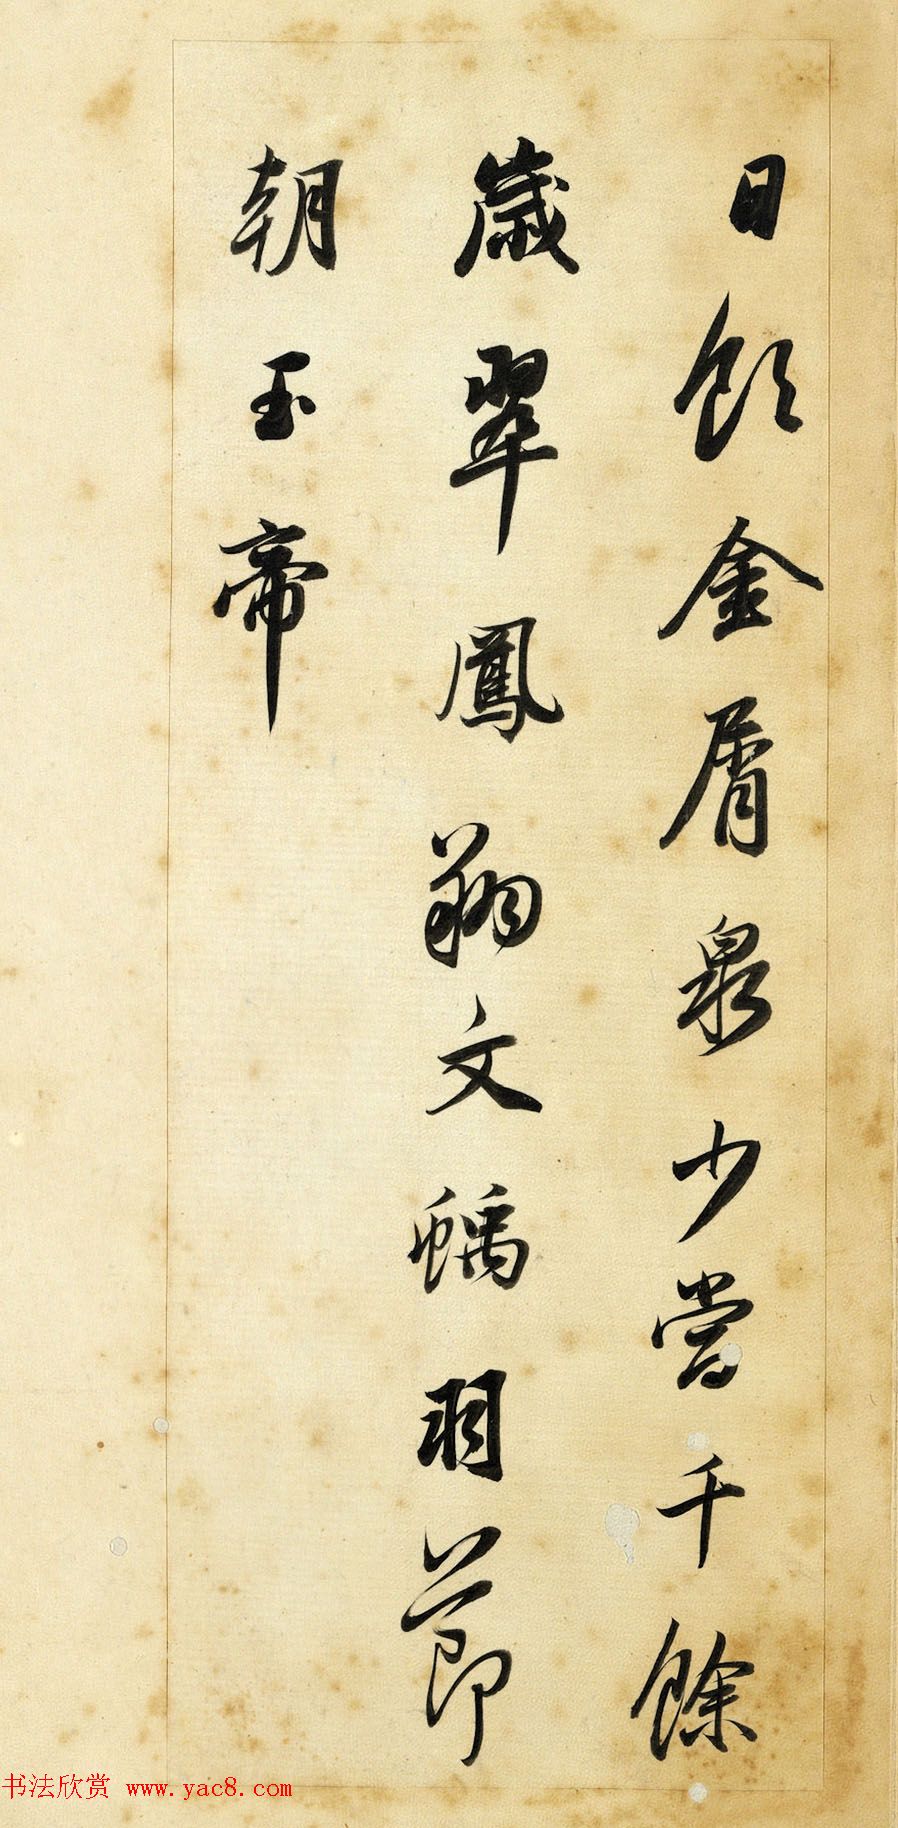 日飲金屑泉少當千餘
歲翠鳳翔文螭羽節
朝玉帝
书法欣赏 www.yac8.com